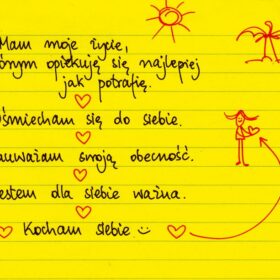 Mam moje życie,
którym opiekuję się najlepiej
jak potrafię.
Uśmiecham się do siebie.
Zauważam swoją obecność.
Jestem dla siebie ważna.
Kocham siebie